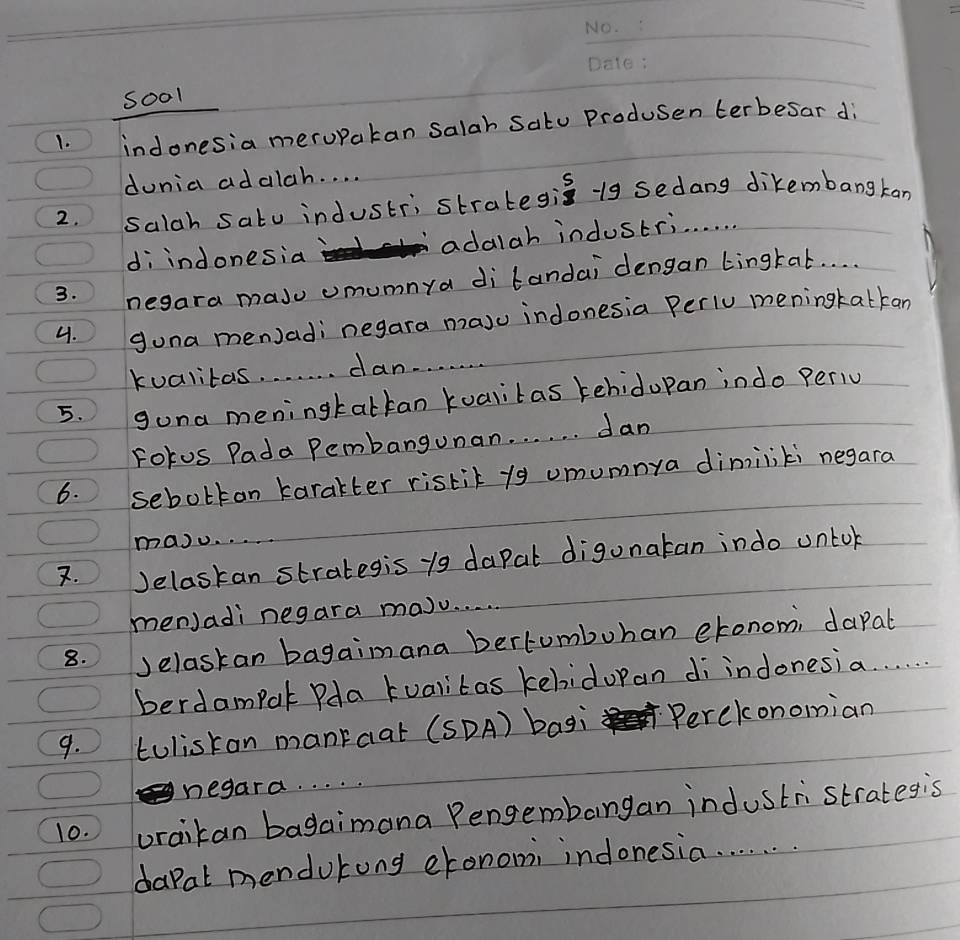 No. :
Date :
Soal
1. indonesia merupakan salah satu Produsen terbesar di
dunia adalah....
2. salah satu industri strategis yg sedang dikembangkan
di indonesia adalah industri......
3. negara maju umumnya di tandai dengan tingkat....
4. guna menjadi negara maju indonesia Perlu meningkatkan
kualitas....... dan.......
5. guna meningkatkan kualitas kehidupan indo Perlu
Fokus Pada Pembangunan...... dan
6. sebutkan karakter ristik yg umumnya dimiliki negara
maju.....
7. Jelaskan strategis yg dapat digunakan indo untuk
menjadi negara maju.....
8. Jelaskan bagaimana bertumbuhan ekonomi dapat
berdampak Pda kualitas kehidupan di indonesia......
9. tuliskan manfaat (SDA) bagi Perekonomian
negara.....
10. uraikan bagaimana Pengembangan industri strategis
dapat mendukung ekonomi indonesia.......